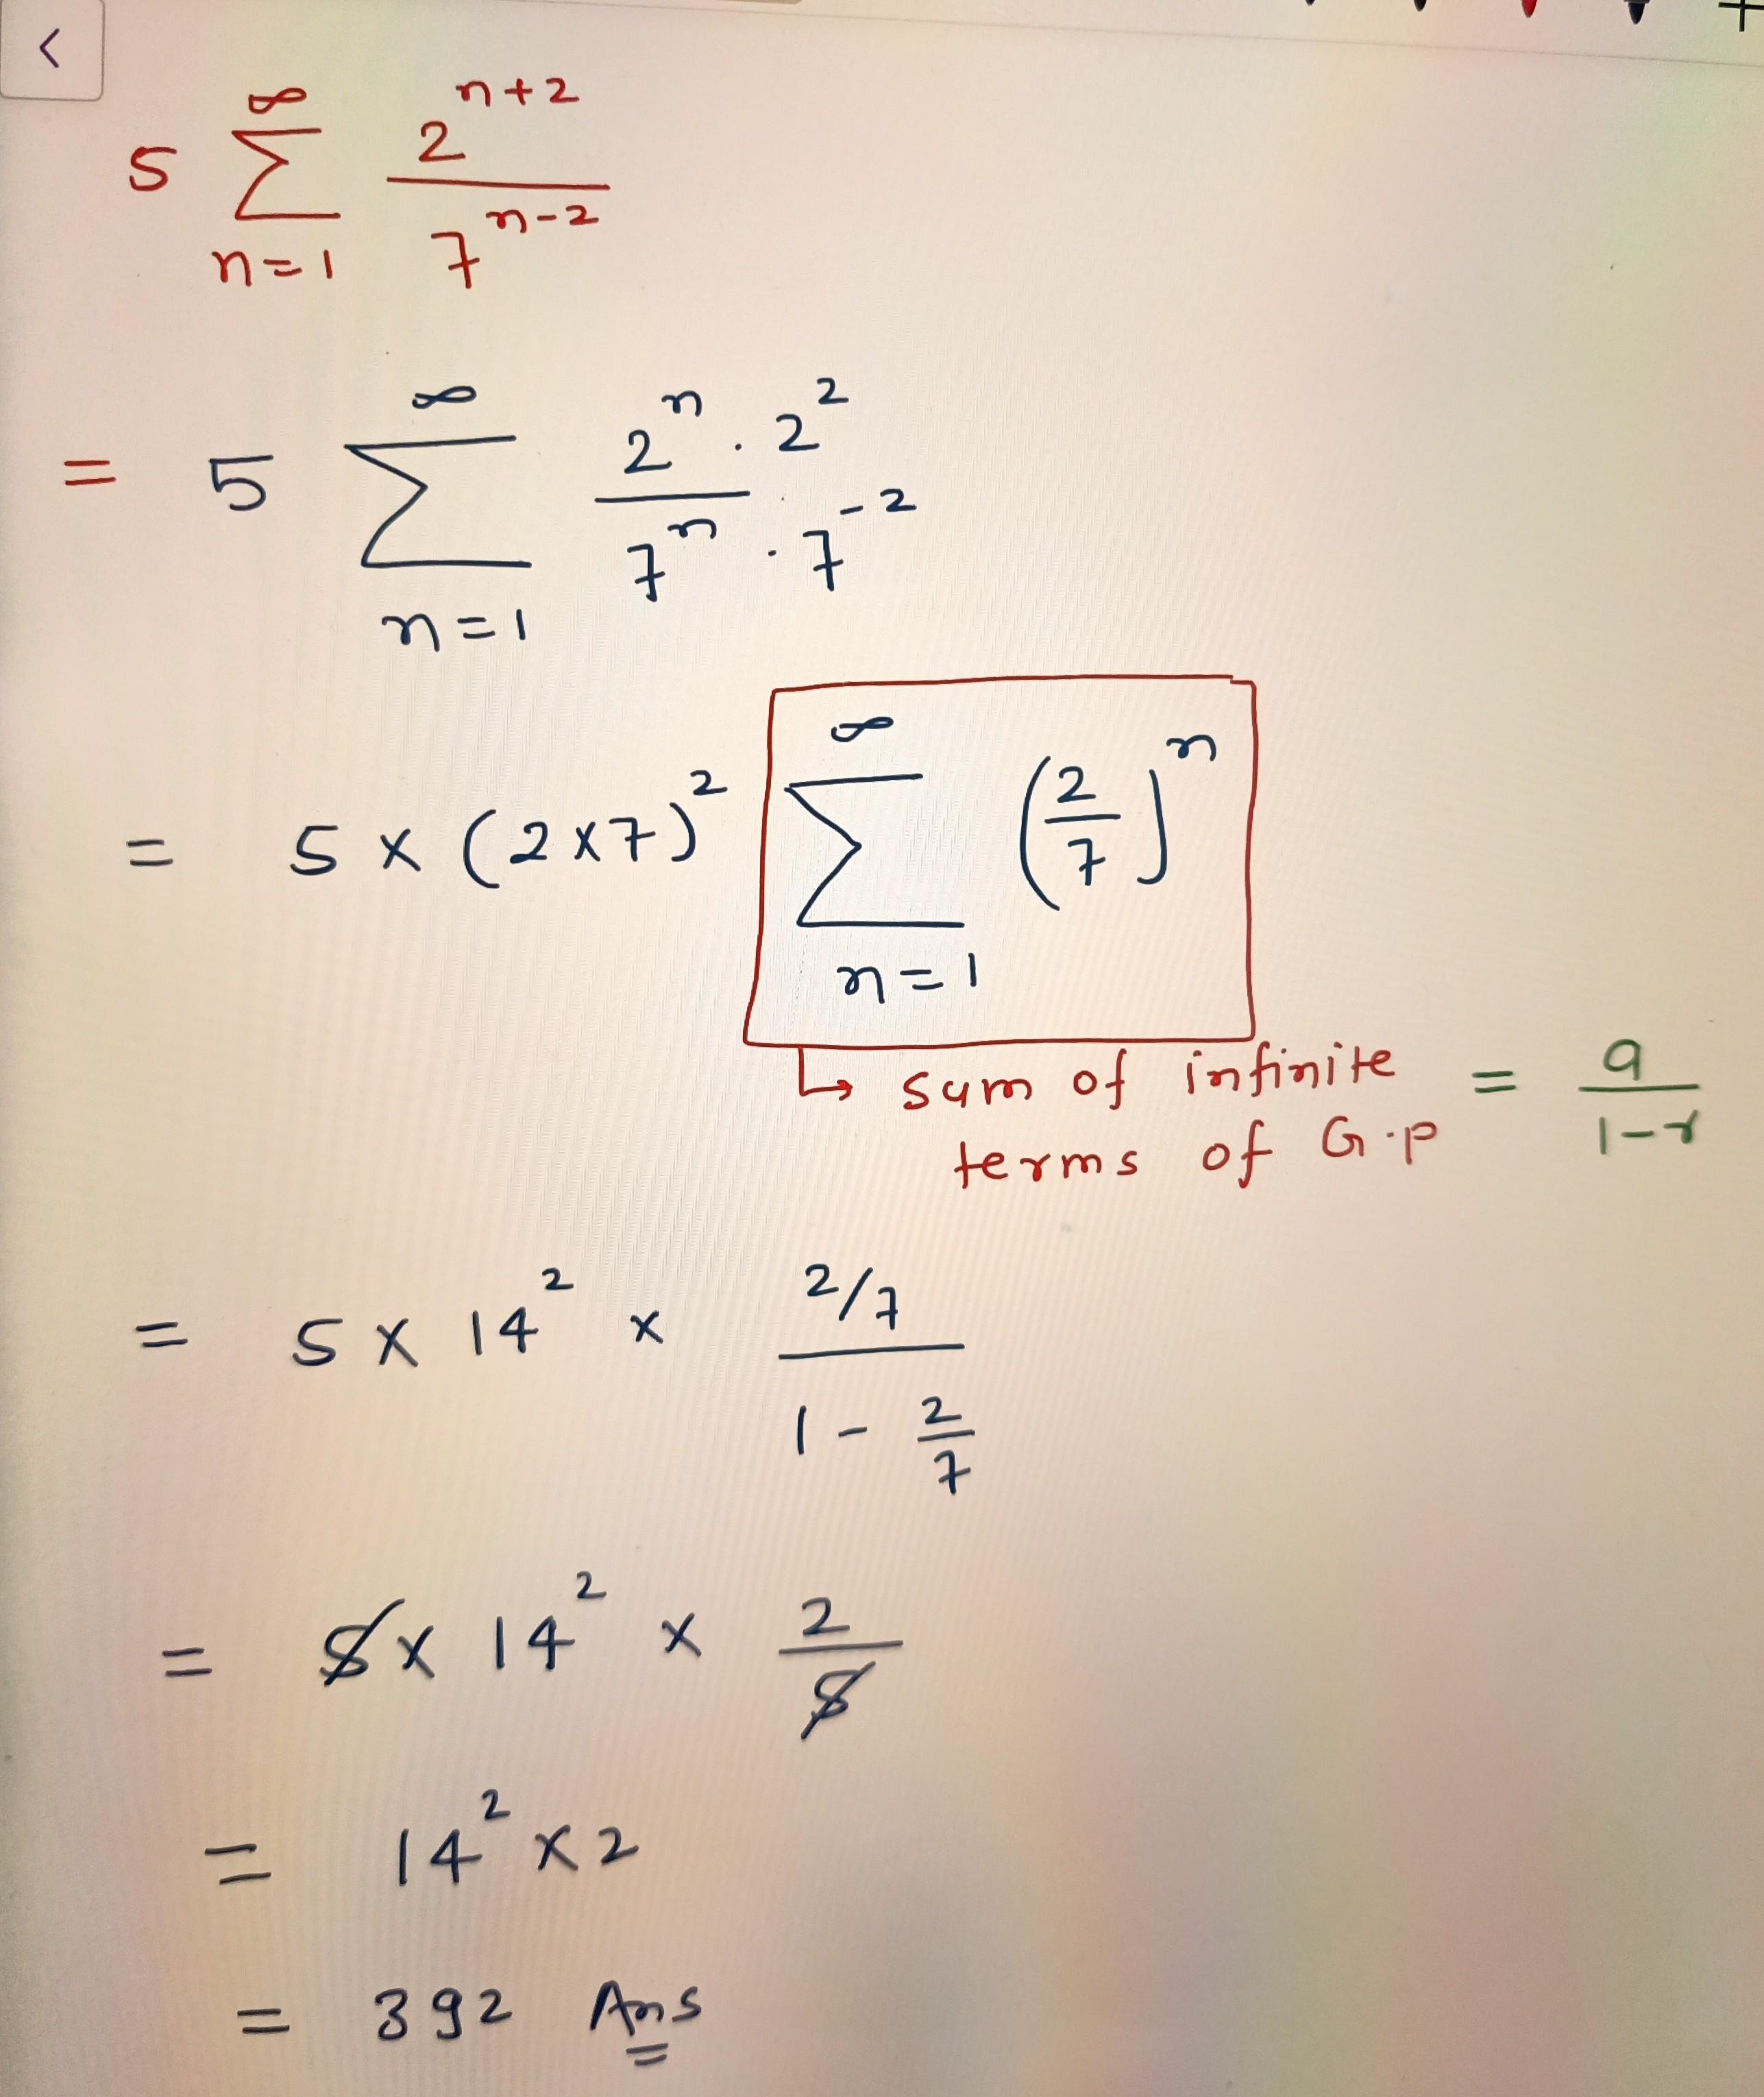 <
5 ∞∑n=1 2^(n+2) / 7^(n-2)
= 5 ∞∑n=1 2^n · 2^2 / 7^n · 7^-2
= 5 × (2×7)^2 ∞∑n=1 (2/7)^n
↳ sum of infinite terms of G.P = a / 1-r
= 5 × 14^2 × 2/7 / 1 - 2/7
= 5 × 14^2 × 2/5
= 14^2 × 2
= 392 Ans